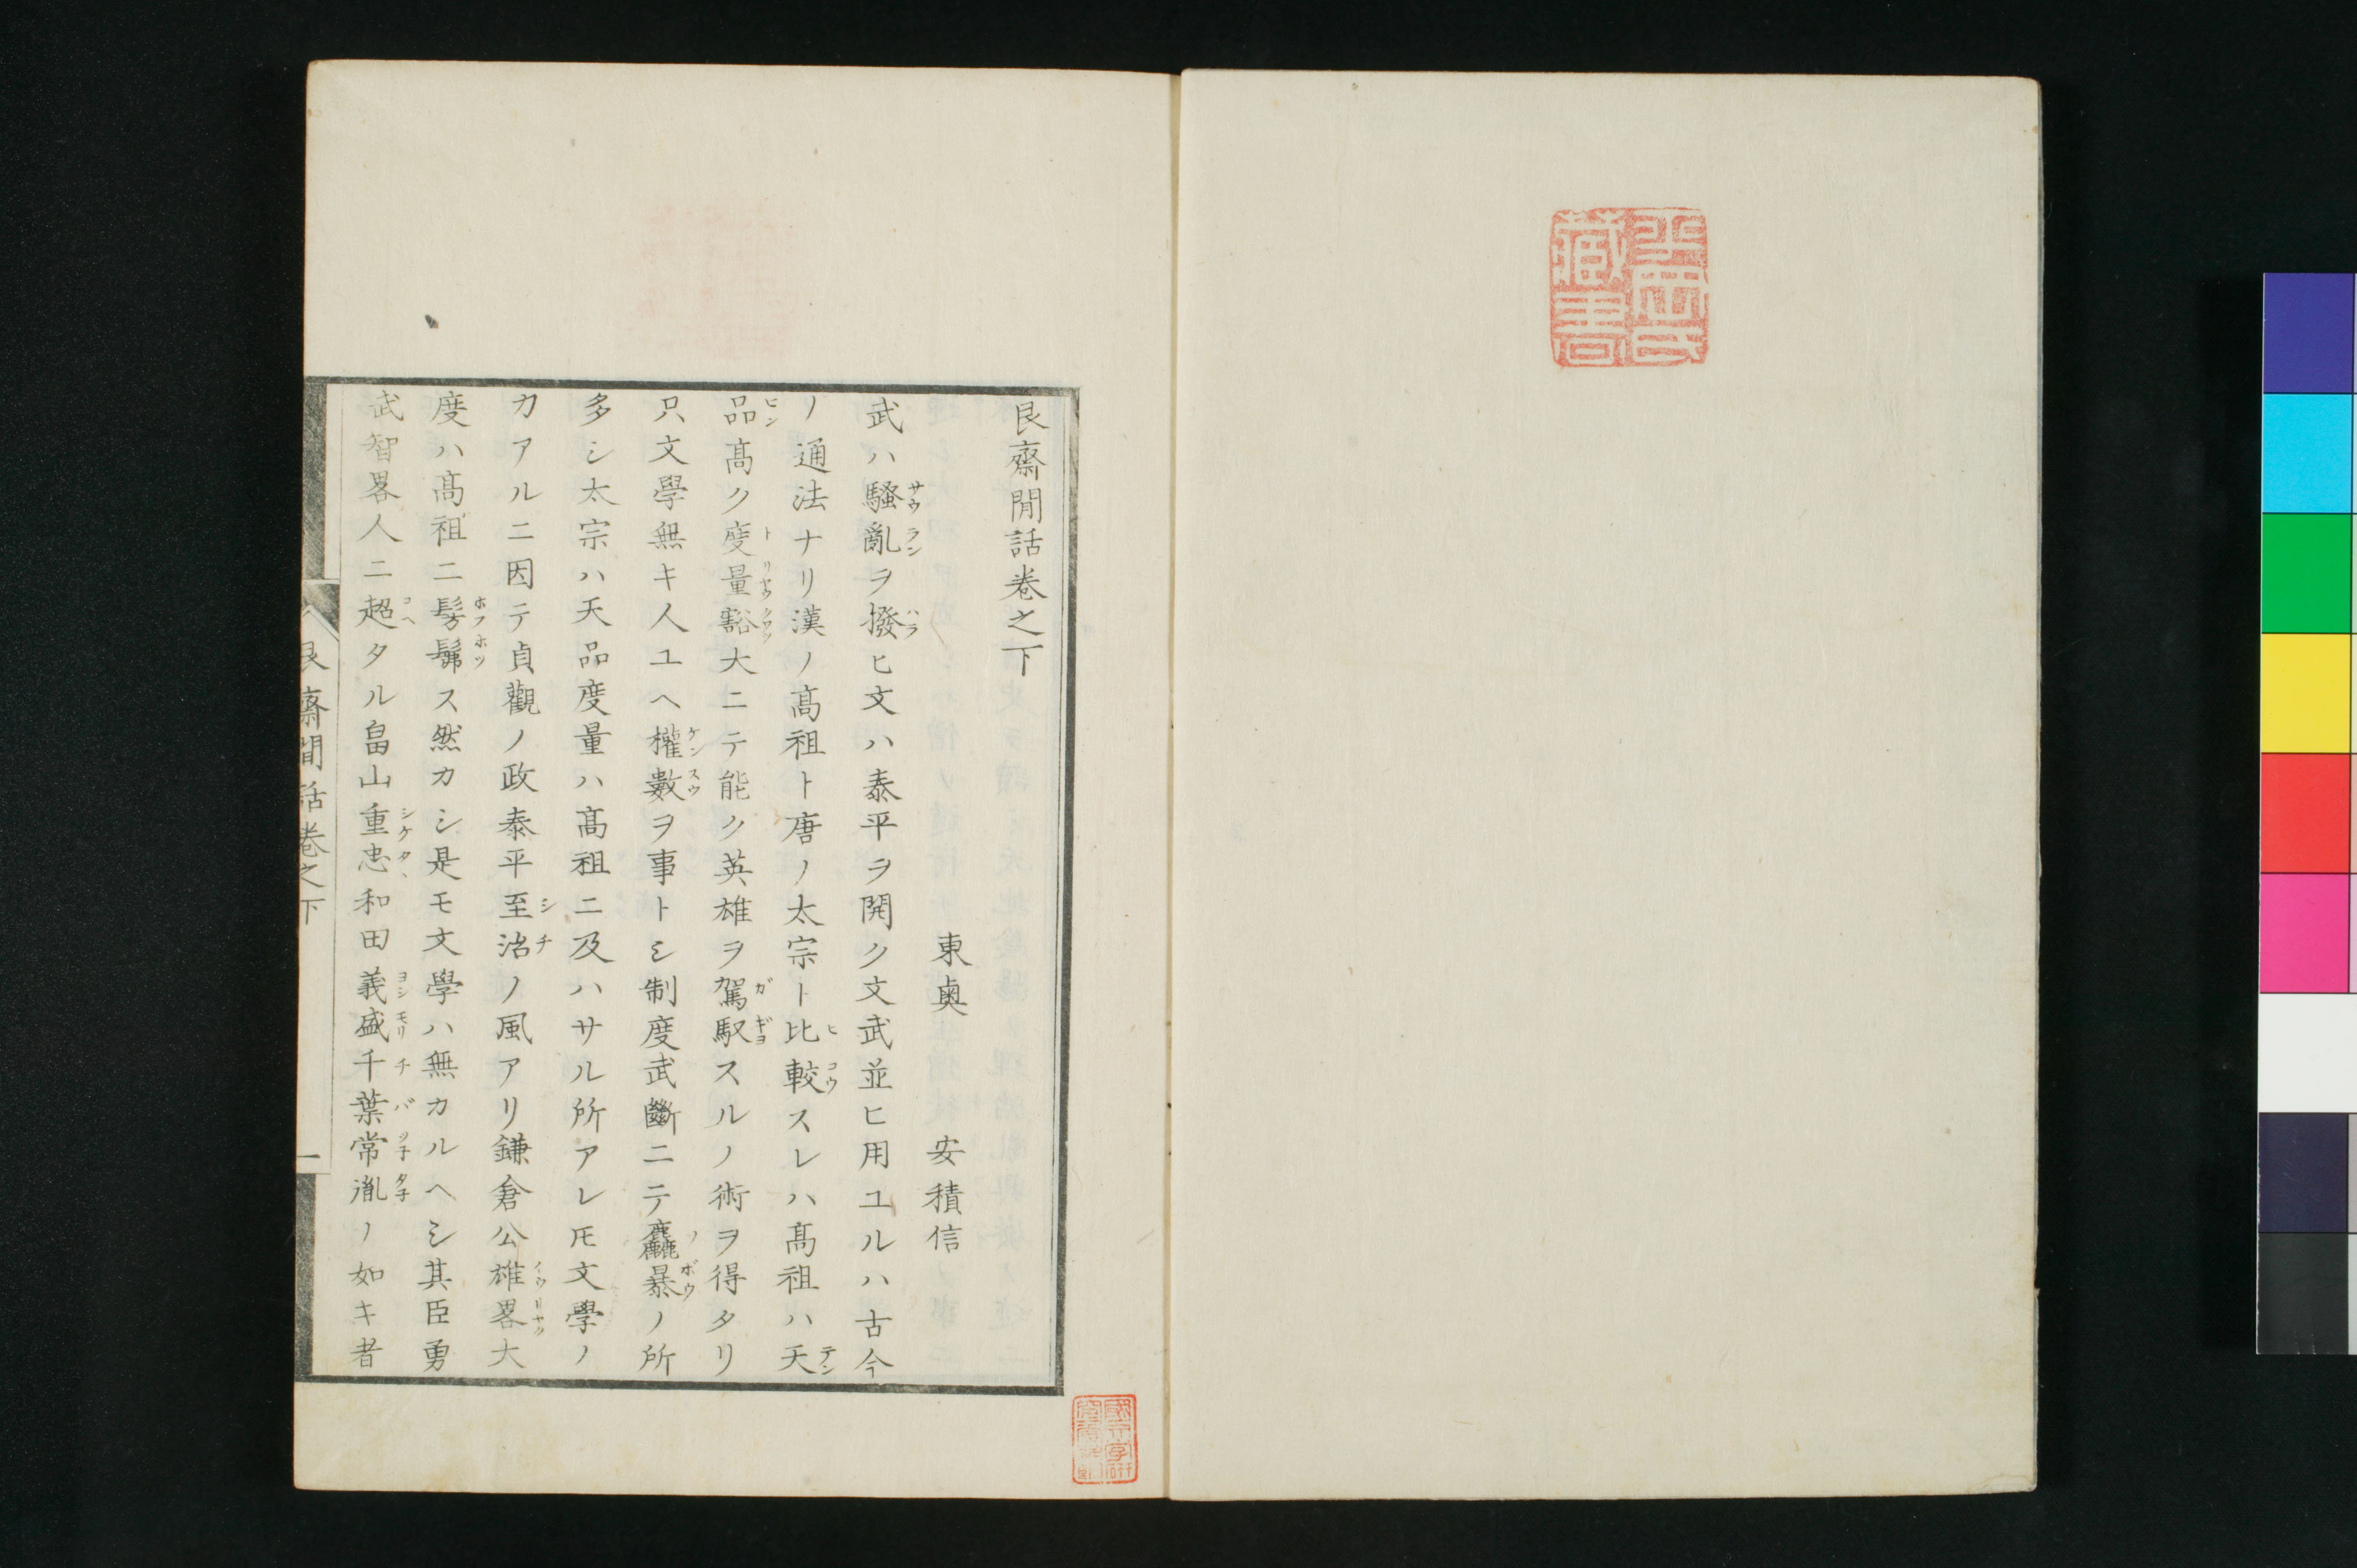 艮齋閒話卷之下
東奥　安積信
武ハ騷亂ヲ撥ヒ文ハ泰平ヲ開ク文武並ヒ用ユルハ古今
ノ通法ナリ漢ノ髙祖ト唐ノ太宗ト比較スレハ髙祖ハ天
品髙ク度量豁大ニテ能ク英雄ヲ駕馭スルノ術ヲ得タリ
只文學無キ人ユヘ權數ヲ事トシ制度武斷ニテ麤暴ノ所
多シ太宗ハ天品度量ハ髙祖ニ及ハサル所アレ𪜈文學ノ
力アルニ因テ貞觀ノ政泰平至治ノ風アリ鎌倉公雄畧大
度ハ髙祖ニ髣髴ス然カシ是モ文學ハ無カルヘシ其臣勇
武智畧人ニ超タル畠山重忠和田義盛千葉常胤ノ如キ者
艮齋閒話卷之下　一
藏書